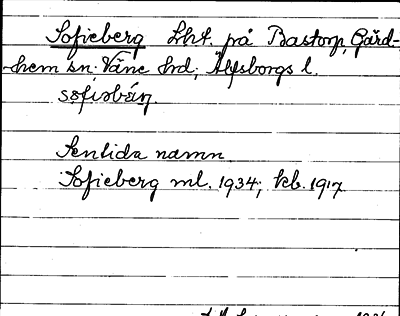 Sofieberg Lht. på Bastorp, Gärd-
hem sn; Väne hrd; Älvsborgs l.
Sentida namn
Sofieberg ml. 1934; kb. 1917